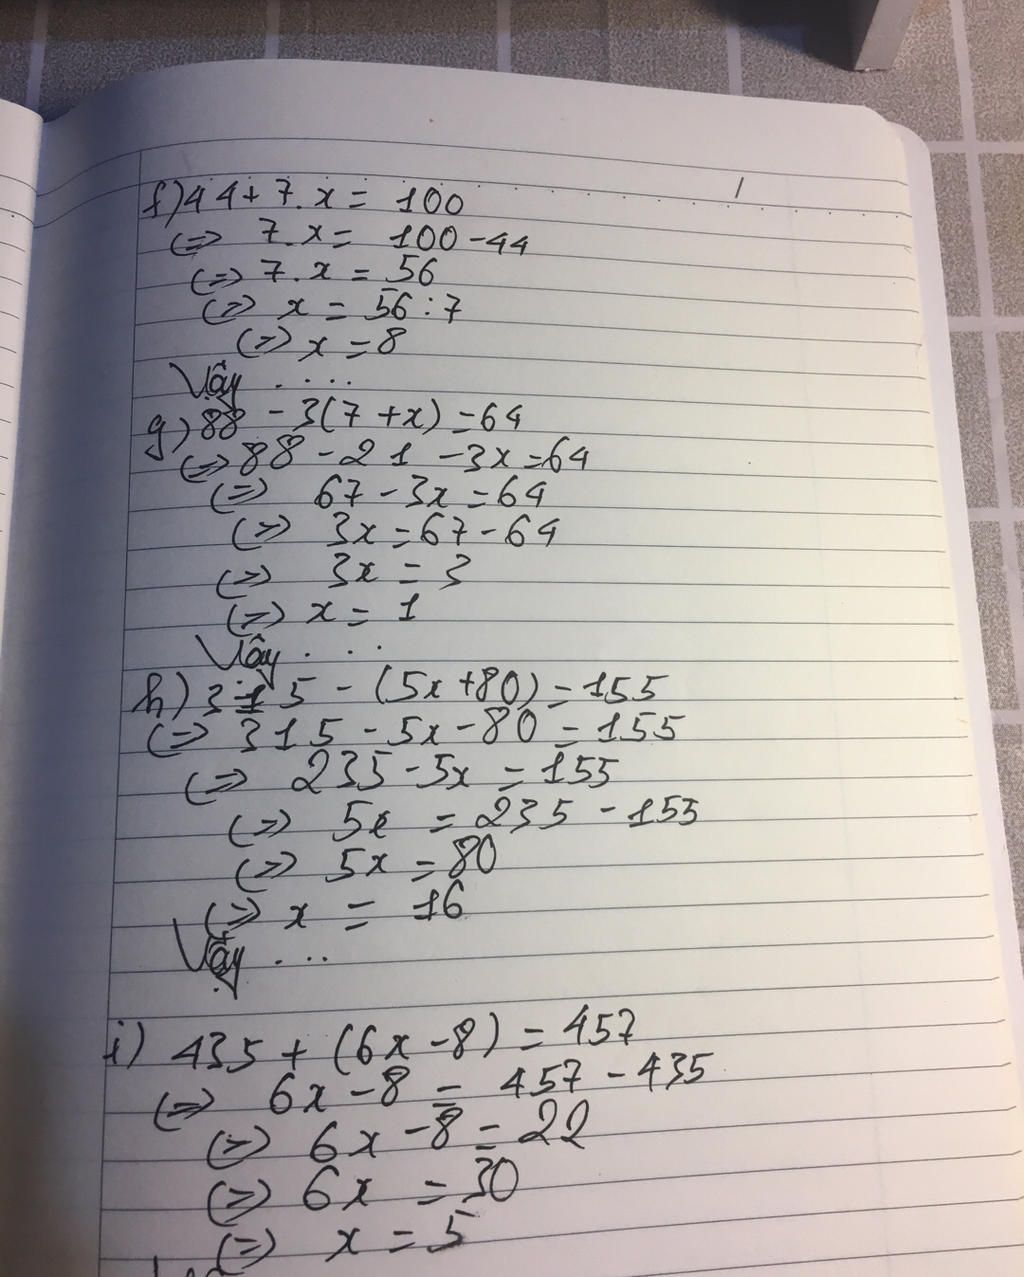 f) 44 + 7.x = 100
(=) 7.x = 100 - 44
(=) 7.x = 56
(=) x = 56 : 7
(=) x = 8
Vậy ....
g) 88 - 3(7 + x) = 64
(=) 88 - 21 - 3x = 64
(=) 67 - 3x = 64
(=) 3x = 67 - 64
(=) 3x = 3
(=) x = 1
Vậy ...
h) 315 - (5x + 80) = 155
(=) 315 - 5x - 80 = 155
(=) 235 - 5x = 155
(=) 5x = 235 - 155
(=) 5x = 80
(=) x = 16
Vậy ...
i) 435 + (6x - 8) = 457
(=) 6x - 8 = 457 - 435
(=) 6x - 8 = 22
(=) 6x = 30
(=) x = 5